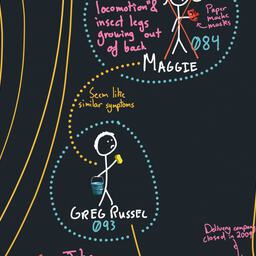 locomotion" &
insect legs
growing out
of back
Paper
mache
masks
084
MAGGIE
Seem like
similar symptoms
GREG RUSSEL
093
Delivery company
closed in 2009